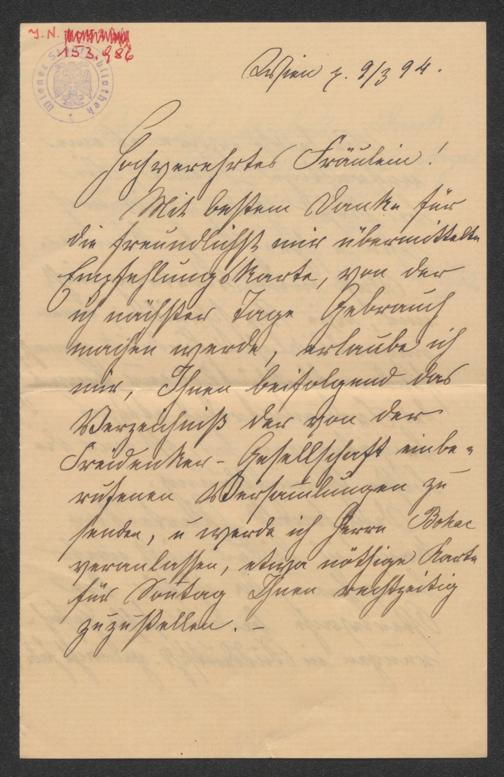 J. N. 153.986
Wiener Stadtbibliothek
Wien p. 9/3 94.
Hochverehrtes Fräulein!
Mit bestem Danke für
die freundlichst mir übermittelte
Empfehlungskarte, von der
ich nächster Tage Gebrauch
machen werde, erlaube ich
mir, Ihnen beifolgend das
Verzeichniß der von der
Freidenker-Gesellschaft einbe-
rufenen Versamlungen zu
senden, u werde ich Herrn
veranlassen, etwa nöthige Karte
für Sontag Ihnen rechtzeitig
zuzustellen. –